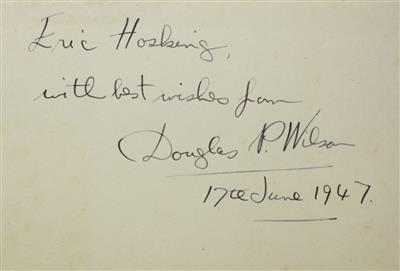 Eric Hosking,
with best wishes from
Douglas P. Wilson
17th June 1947.